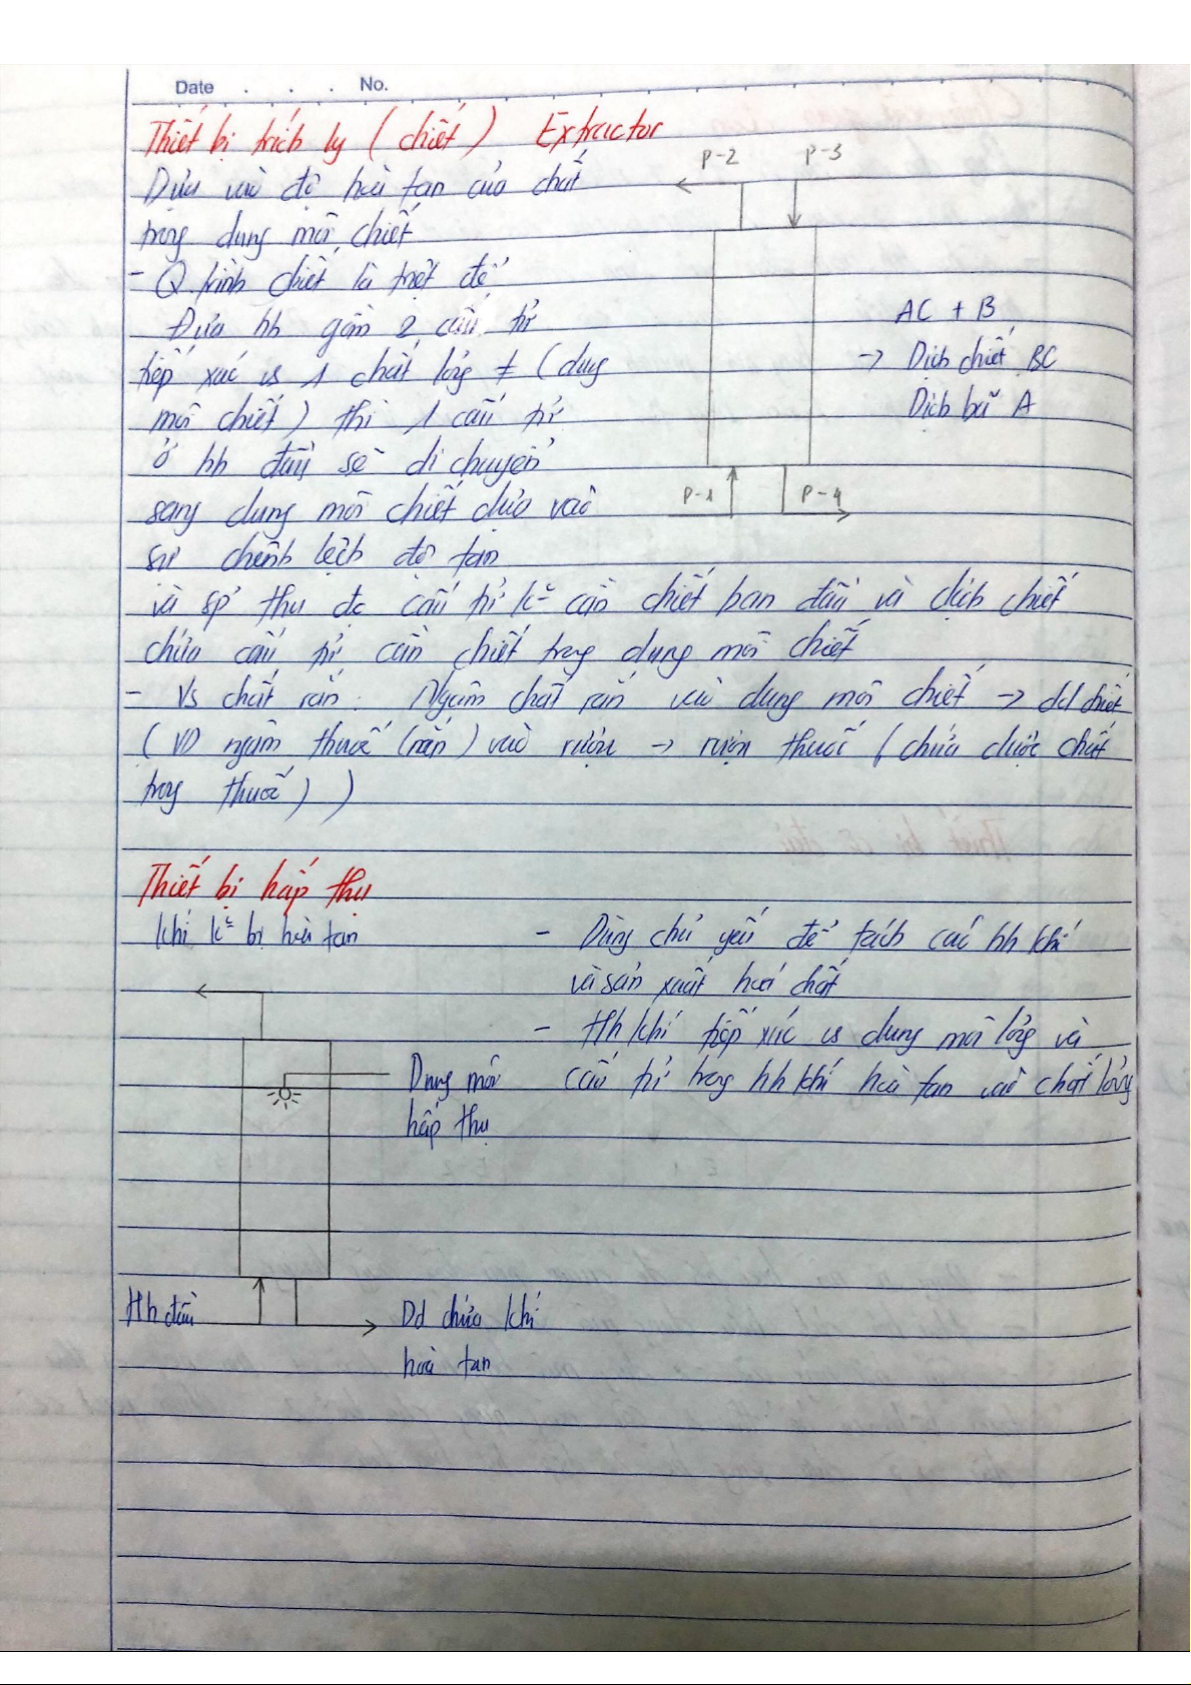 Date . . . No.
Thiết bị trích ly ( chiết ) Extractor
Dựa vào độ hoà tan của chất
trong dung môi chiết
- Q.trình chiết là triệt để
Đưa hh gồm 2 cấu tử
tiếp xúc vs 1 chất lỏng ≠ (dung
môi chiết) thì 1 cấu tử
ở hh đầu sẽ di chuyển
sang dung môi chiết dựa vào
sự chênh lệch độ tan
và sp thu đc cấu tử k° cần chiết ban đầu và dịch chiết
chứa cấu tử cần chiết trong dung môi chiết
- Vs chất rắn: Ngâm chất rắn vào dung môi chiết → dd chiết
( VD ngâm thuốc (rắn) vào rượu → rượu thuốc ( chứa dược chất
trong thuốc ) )
P-2
P-3
AC + B
→ Dịch chiết BC
Dịch bã A
P-1
P-4
Thiết bị hấp thụ
Khí k° bị hoà tan
- Dùng chủ yếu để tách các hh khí
và sản xuất hoá chất
- Hh khí tiếp xúc vs dung môi lỏng và
cấu tử trong hh khí hoà tan vào chất lỏng
Dung môi
hấp thụ
Hh đầu
Dd chứa khí
hoà tan